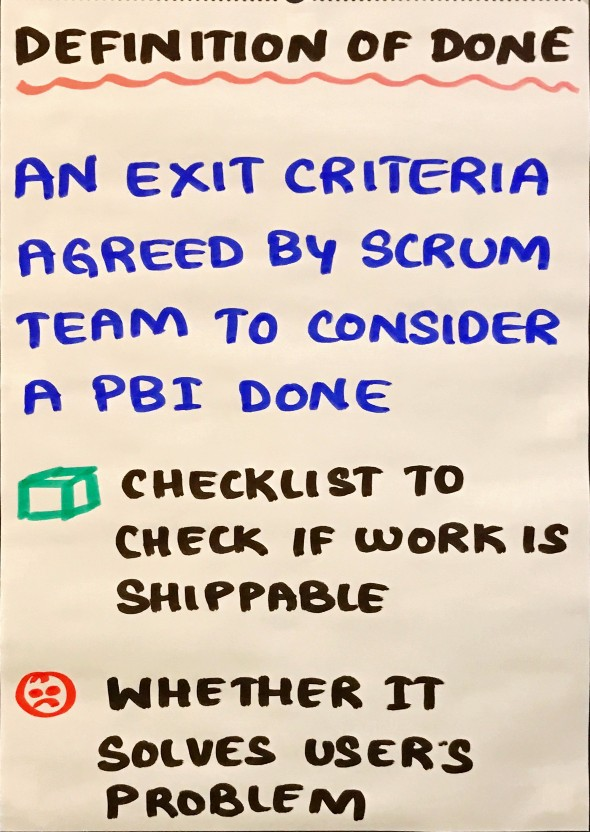 DEFINITION OF DONE
AN EXIT CRITERIA
AGREED BY SCRUM
TEAM TO CONSIDER
A PBI DONE
CHECKLIST TO
CHECK IF WORK IS
SHIPPABLE
WHETHER IT
SOLVES USER'S
PROBLEM